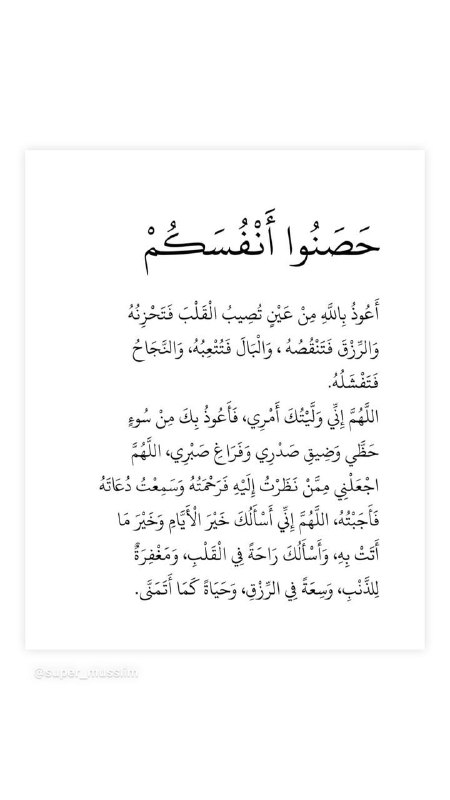 حَصَنُوا أَنْفُسَكُمْ
أَعُوذُ بِاللَّهِ مِنْ عَيْنٍ تُصِيبُ الْقَلْبَ فَتَحْزِنُهُ
وَالرِّزْقَ فَتَنْقُصُهُ ، وَالْبَالَ فَتُتْعِبُهُ، وَالنَّجَاحُ
فَتَفْشَلُهُ.
اللَّهُمَّ إِنِّي وَلَّيْتُكَ أَمْرِي، فَأَعُوذُ بِكَ مِنْ سُوءٍ
حَظَّي وَضِيقِ صَدْرِي وَفَرَاغِ صَبْرِي، اللَّهُمَّ
اجْعَلْنِي مِمَّنْ نَظَرْتُ إِلَيْهِ فَرَحْمَتُهُ وَسَمِعْتُ دُعَاتَهُ
فَأَجَبْتُهُ، اللَّهُمَّ إِنِّي أَسْأَلُكَ خَيْرَ الْأَيَّامِ وَخَيْرَ مَا
أَتَتْ بِهِ، وَأَسْأَلُكَ رَاحَةً فِي الْقَلْبِ، وَمَغْفِرَةٌ
لِلذَّنْبِ، وَسِعَةً فِي الرِّزْقِ، وَحَيَاةً كَمَا أَتَمَنَّى.
@super_mussiim